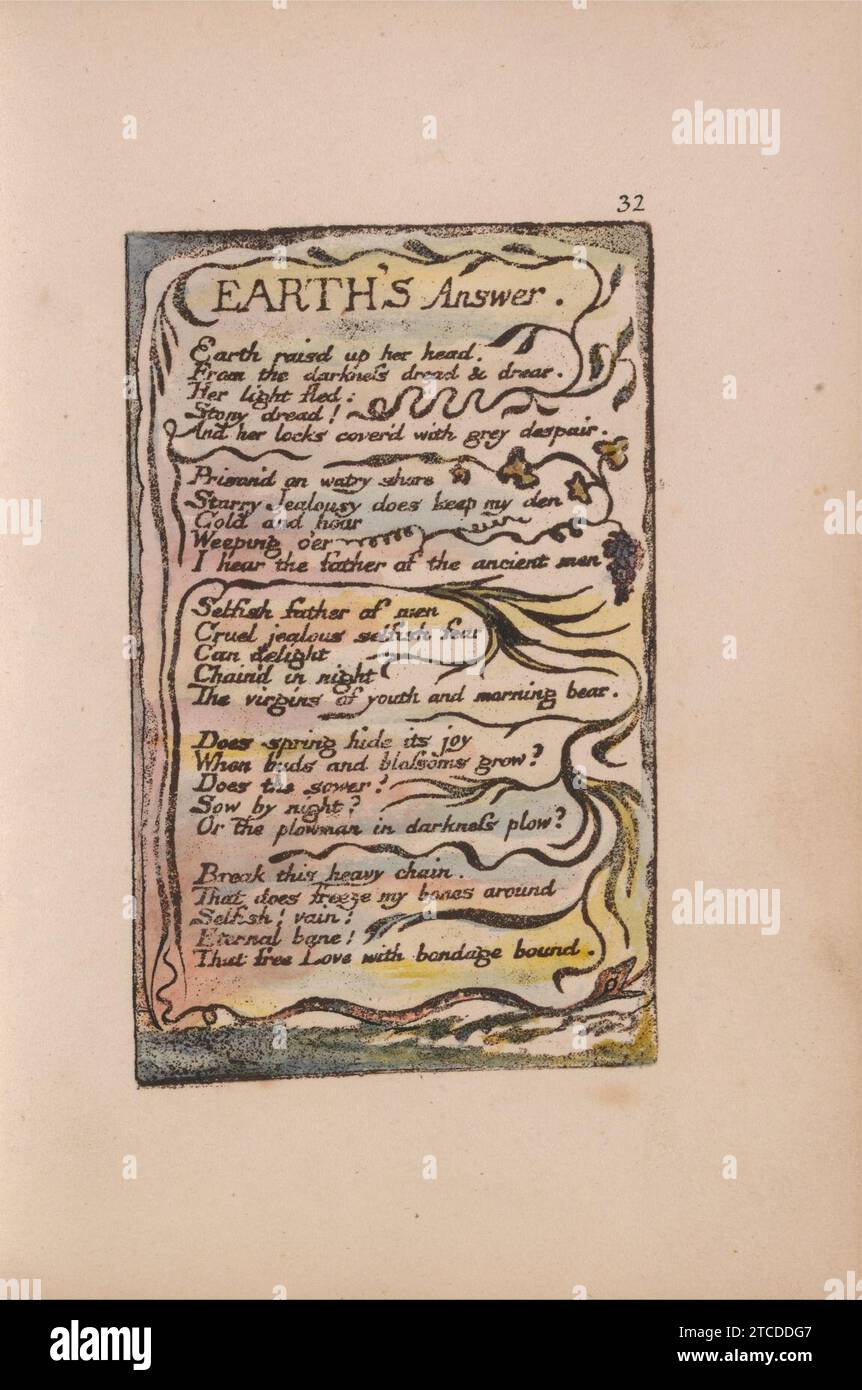 32
EARTH'S Answer.
Earth rais'd up her head.
From the darkness dread & drear.
Her light fled:
Stony dread!
And her locks cover'd with grey despair.
Prison'd on watry shore
Starry Jealousy does keep my den
Cold and hoar
Weeping o'er
I hear the father of the ancient men
Selfish father of men
Cruel jealous selfish fear
Can delight
Chain'd in night
The virgins of youth and morning bear.
Does spring hide its joy
When buds and blossoms grow?
Does the sower?
Sow by night?
Or the plowman in darkness plow?
Break this heavy chain.
That does freeze my bones around
Selfish! vain!
Eternal bane!
That free Love with bondage bound.
alamy
alamy
alamy
alamy
alamy
a
a
a
a
a
a
a
a
a
a
alamy
Image ID: 2TCDDG7
www.alamy.com